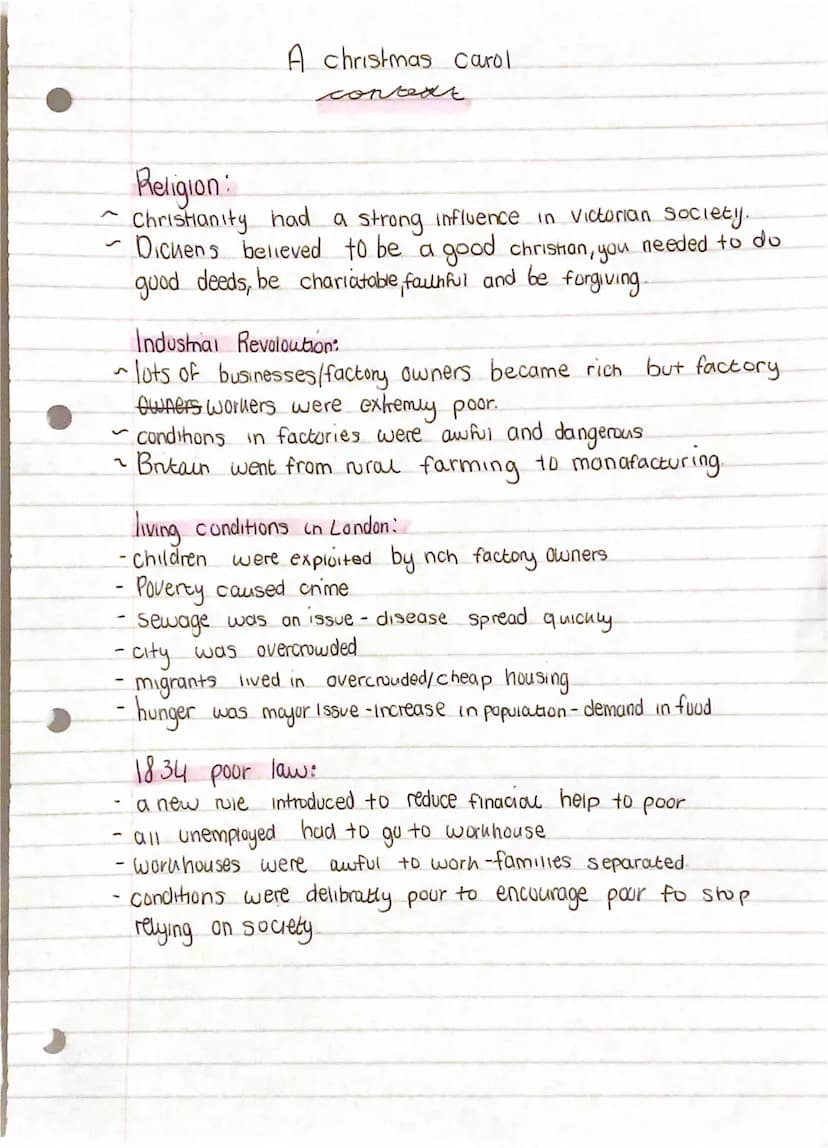 A christmas carol
context
Religion:
~ Christianity had a strong influence in Victorian society.
~ Dickens believed to be a good christian, you needed to do
good deeds, be chariatable, faithful and be forgiving.
Industrial Revoloution:
~ lots of businesses/factory owners became rich but factory
owners workers were extremly poor.
~ conditions in factories were awful and dangerous
~ Britain went from rural farming to manafacturing.
living conditions in London:
- children were exploited by rich factory owners
- Poverty caused crime
- sewage was an issue - disease spread quickly
- city was overcrowded
- migrants lived in overcrouded/cheap housing
- hunger was mayor issue - increase in population - demand in food
1834 poor law:
- a new rule introduced to reduce finacial help to poor
- all unemployed had to go to workhouse
- workhouses were awful to work - families separated.
- conditions were delibratly pour to encourage poor to stop
relying on society